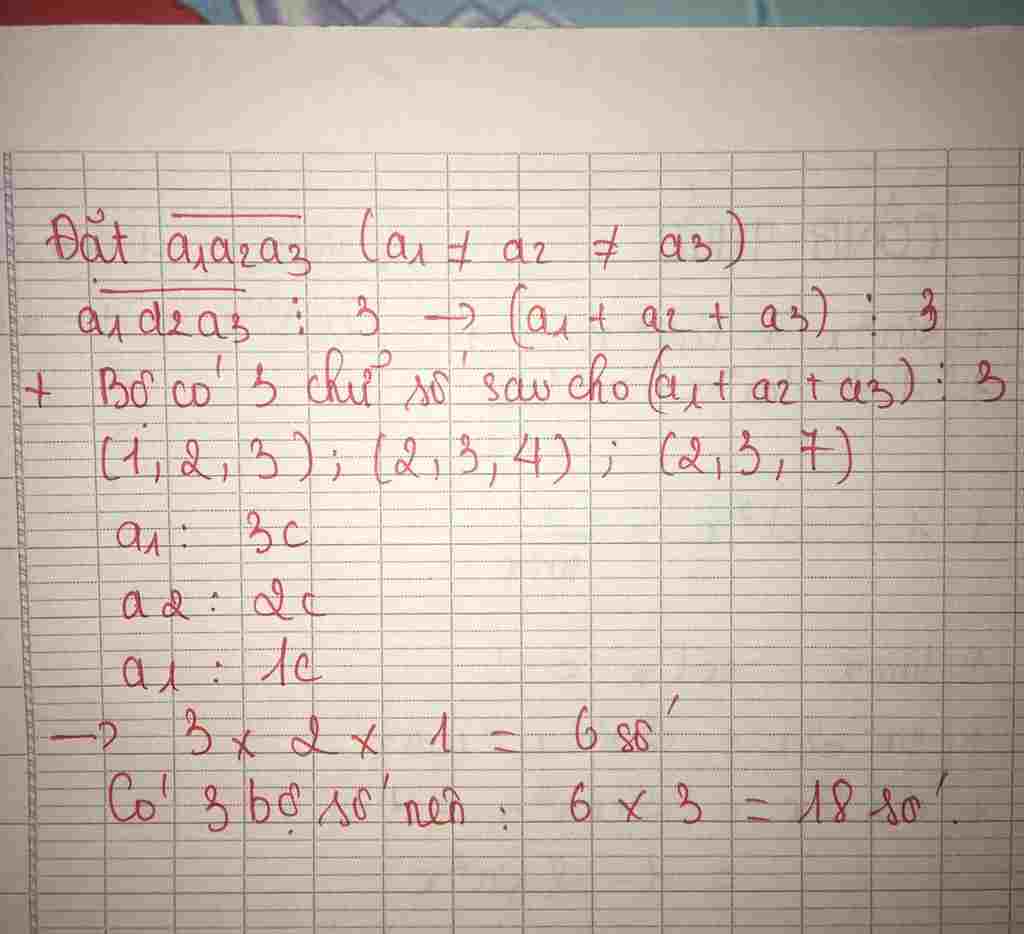 Đặt a1a2a3 (a1 ≠ a2 ≠ a3)
a1a2a3 ⋮ 3 → (a1 + a2 + a3) ⋮ 3
+ Bộ có 3 chữ số sao cho (a1 + a2 + a3) ⋮ 3
(1, 2, 3) ; (2, 3, 4) ; (2, 3, 7)
a1 : 3c
a2 : 2c
a1 : 1c
→ 3 x 2 x 1 = 6 số
Có 3 bộ số nên : 6 x 3 = 18 số.